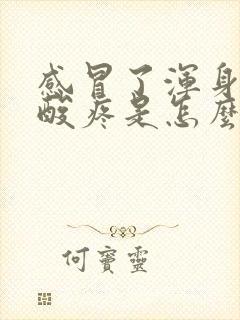 感冒了渾身
酸疼是怎麼
何寶靈